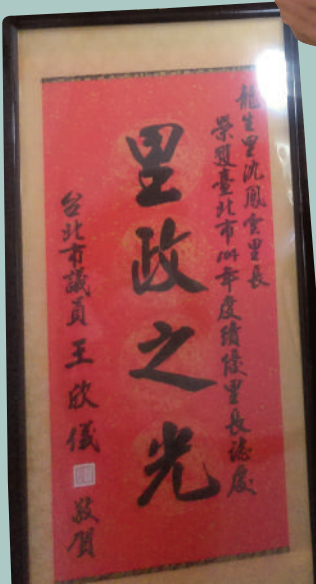 龍生里沈鳳雲里長
榮獲臺北市104年度績優里長誌慶
里政之光
台北市議員王欣儀 敬賀